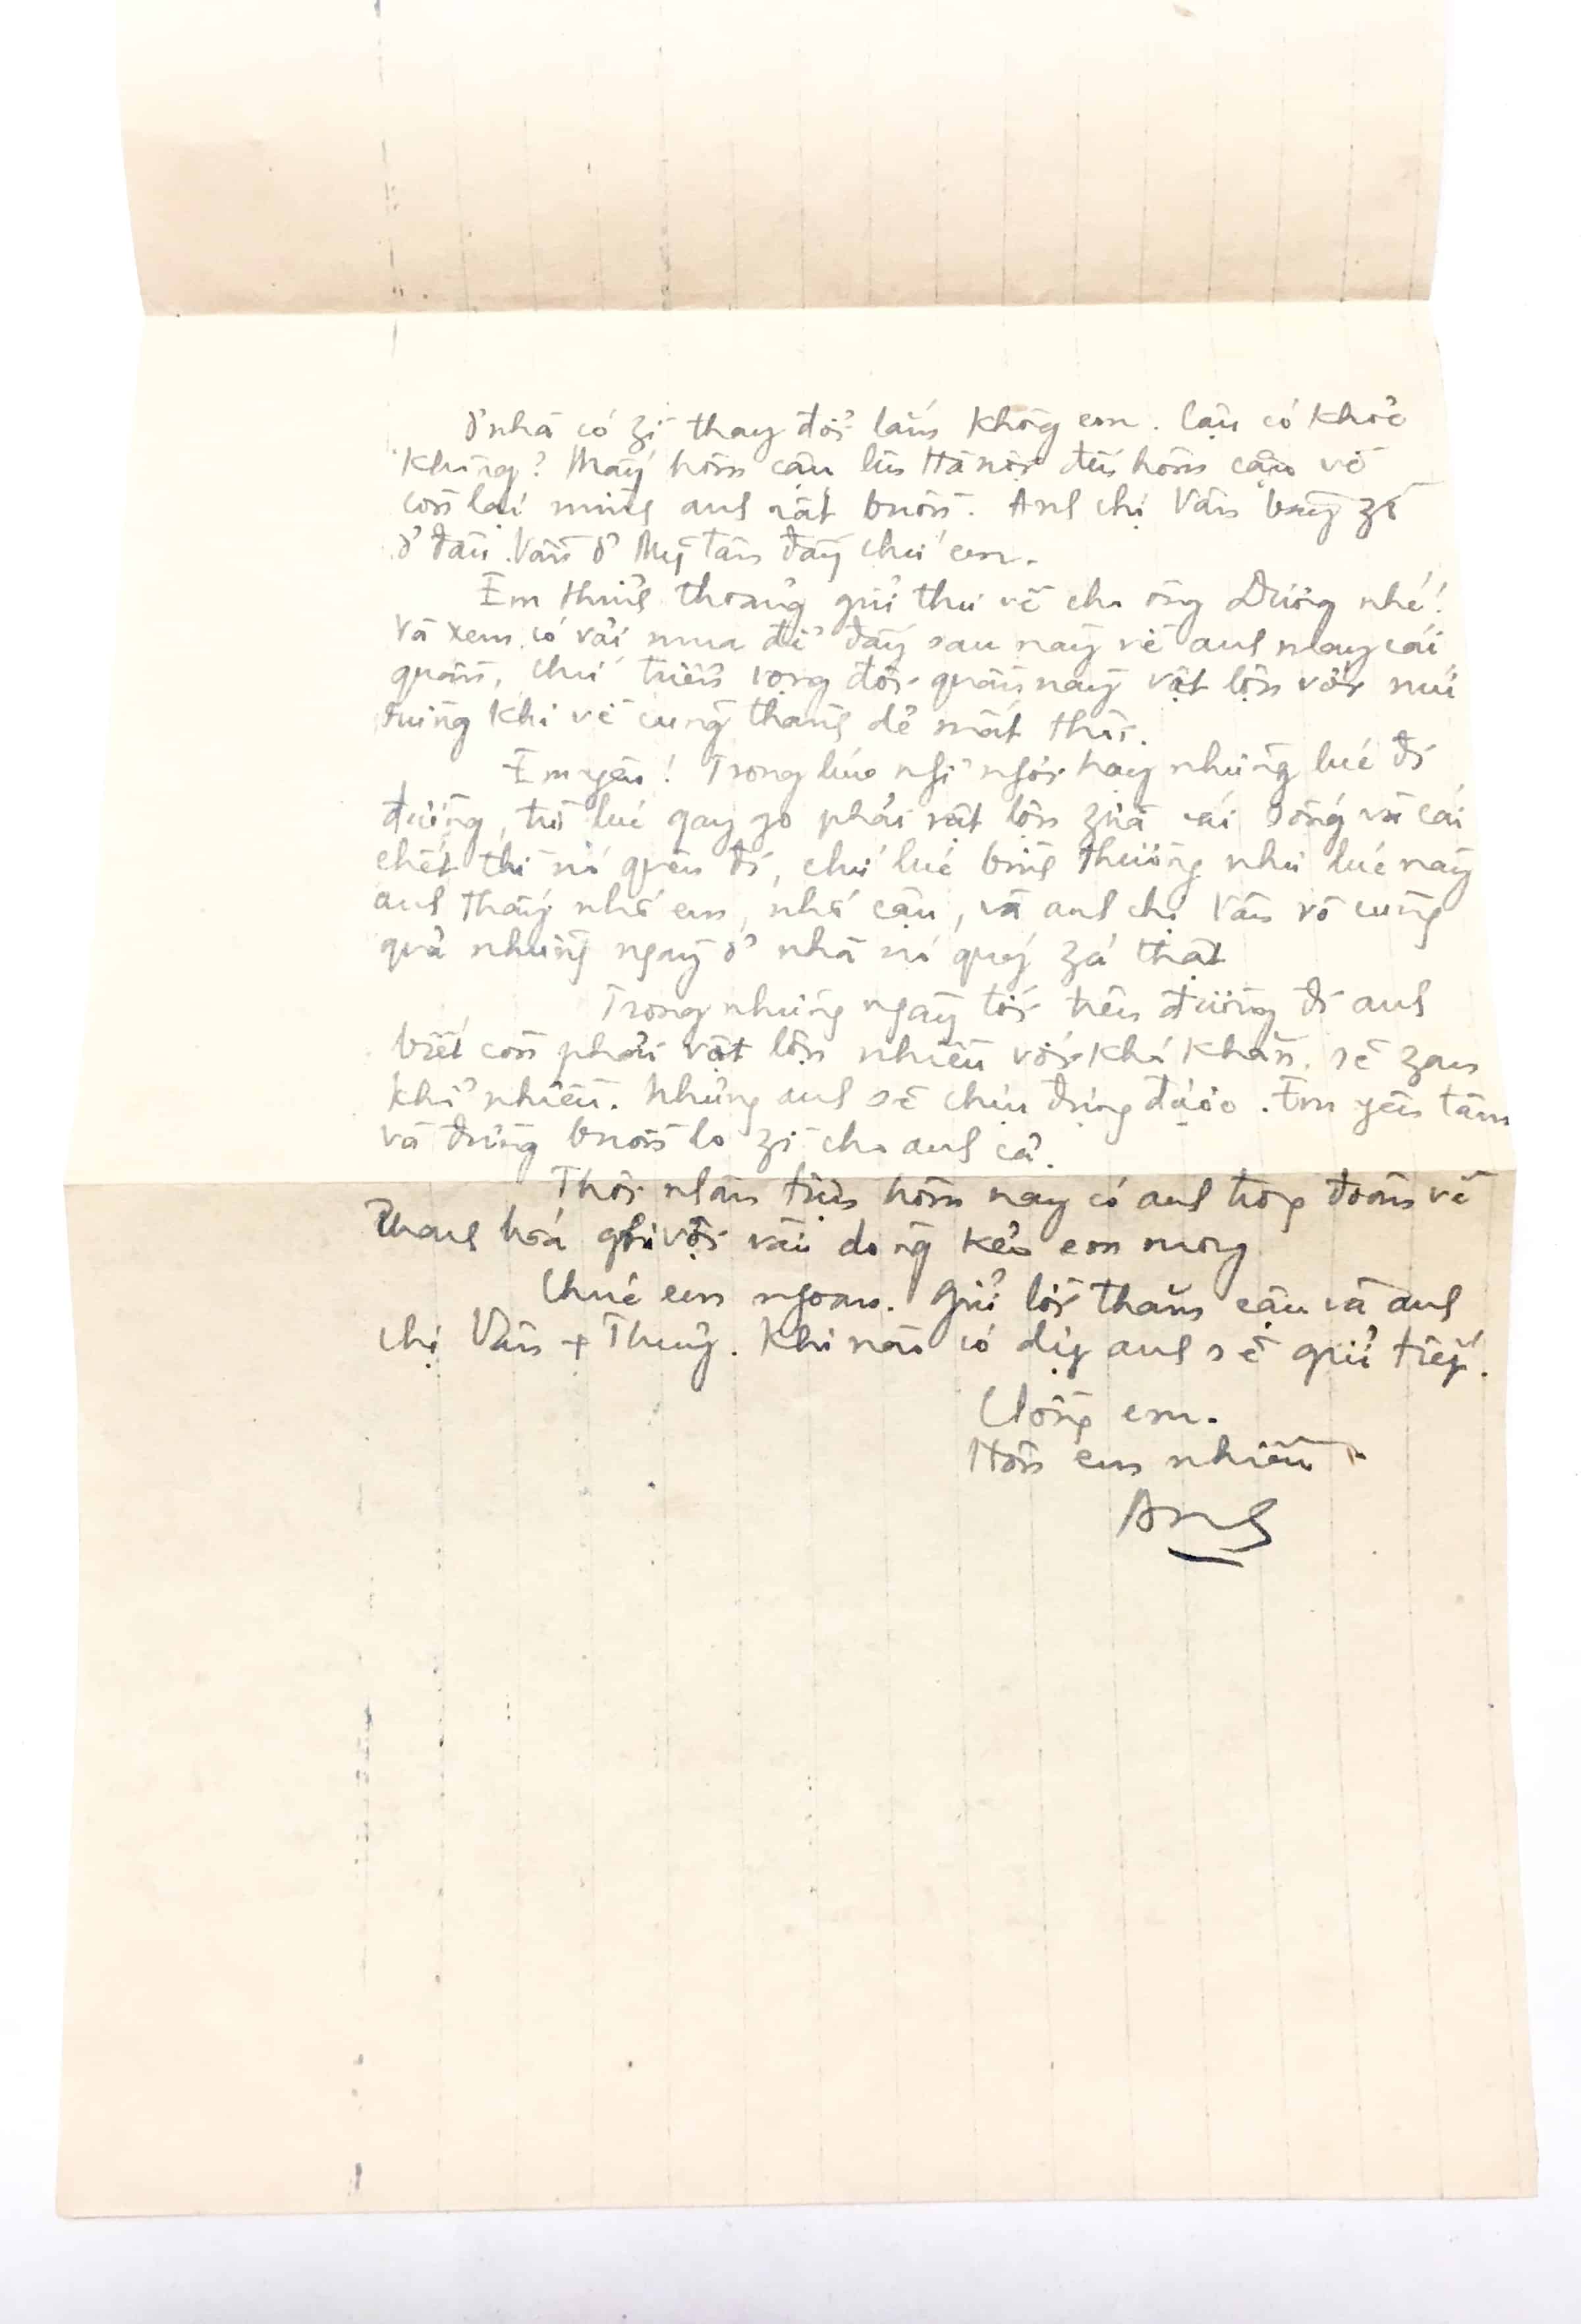 Ở nhà có zì thay đổi lắm không em. Cậu có khoẻ
không? Mấy hôm cậu lên Hà nội đến hôm cậu về
còn lại mình anh rất buồn. Anh chị Vân bây zờ
ở đâu. Vẫn ở Mỹ Tân đấy chứ em.
Em thỉnh thoảng gửi thư về cho ông Dương nhé!
Và xem có vải mua để đấy sau này về anh may cái
quần, chứ trên vọng đôi quần này vật lộn với núi
rừng khi về cũng thành dẻ mất thôi.
Em yêu! Trong lúc nghỉ ngơi hay những lúc đi
đường, trừ lúc gay go phải vật lộn zữa cái sống và cái
chết thì nó quên đi, chứ lúc bình thường như lúc này
anh thấy nhớ em, nhớ cậu, và anh chị Vân vô cùng
quả những ngày ở nhà nó quý zá thật
Trong những ngày tới trên đường đi anh
biết còn phải vật lộn nhiều với khó khăn. sẽ zan
khổ nhiều. Nhưng anh sẽ chịu đựng được. Em yên tâm
và đừng buồn lo zì cho anh cả.
Thôi nhân tiện hôm nay có anh trong đoàn về
Thanh hoá ghi vội vài dòng kẻo em mong
Chúc em ngoan. Gửi lời thăm cậu và anh
chị Vân + Thuỷ. Khi nào có dịp anh sẽ gửi tiếp.
Chồng em.
Hôn em nhiều
Anh